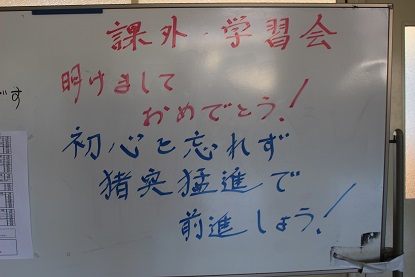 課外 学習会
明けまして
おめでとう!
初心を忘れず
猪突猛進で
前進しよう!
です